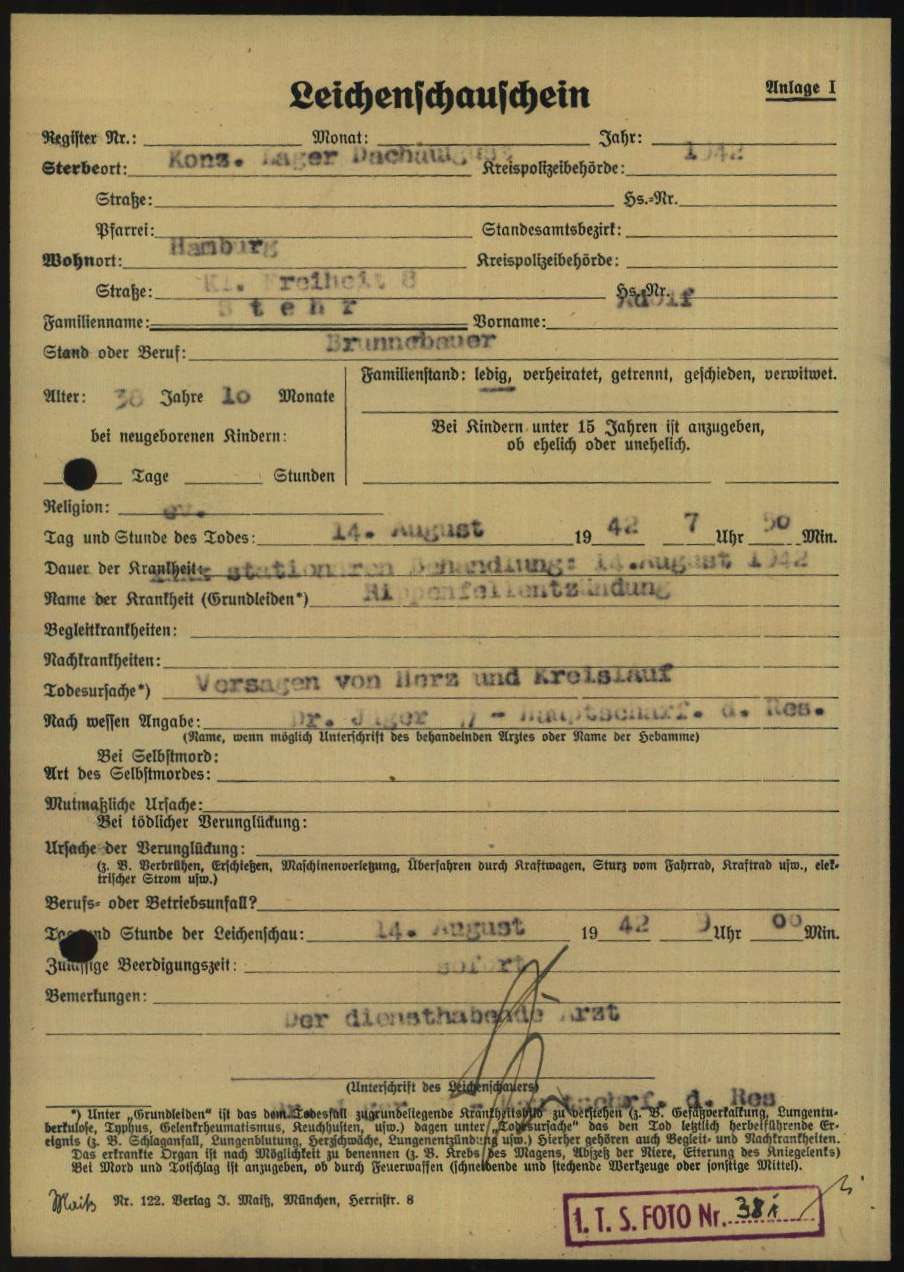 Leichenschauschein
Anlage I
Register Nr.: Monat: Jahr:
Konz. Lager Dachau 1942
Sterbeort: Kreispolizeibehörde:
Straße: Hs.-Nr.
Pfarrei: Standesamtsbezirk:
Hamburg
Wohnort: Kreispolizeibehörde:
Kl. Freiheit 8
Straße: Hs.-Nr.
Stehr Adolf
Familienname: Vorname:
Stand oder Beruf: Brunnebauer
Familienstand: ledig, verheiratet, getrennt, geschieden, verwitwet.
Alter: 38 Jahre 10 Monate
Bei Kindern unter 15 Jahren ist anzugeben,
ob ehelich oder unehelich.
bei neugeborenen Kindern:
Tage Stunden
Religion: ev.
Tag und Stunde des Todes: 14. August 1942 7 Uhr 50 Min.
Dauer der Krankheit: stationären Behandlung: 14.August 1942
Name der Krankheit (Grundleiden*) Rippenfellentzündung
Begleitkrankheiten:
Nachkrankheiten:
Todesursache*) Versagen von Herz und Kreislauf
Nach wessen Angabe: Dr. Jäger - Hauptscharf. d. Res.
(Name, wenn möglich Unterschrift des behandelnden Arztes oder Name der Hebamme)
Bei Selbstmord:
Art des Selbstmordes:
Mutmaßliche Ursache:
Bei tödlicher Verunglückung:
Ursache der Verunglückung:
(z. B. Verbrühen, Erschießen, Maschinenverletzung, Überfahren durch Kraftwagen, Sturz vom Fahrrad, Kraftrad usw., elek-
trischer Strom usw.)
Berufs- oder Betriebsunfall?
Tag und Stunde der Leichenschau: 14. August 1942 9 Uhr 00 Min.
Zulässige Beerdigungszeit: sofort
Bemerkungen:
Der diensthabende Arzt
(Unterschrift des Leichenschauers)
d. Res
*) Unter „Grundleiden“ ist das dem Todesfall zugrundeliegende Krankheitsbild zu verstehen (z. B. Gefäßverkalkung, Lungentu-
berkulose, Typhus, Gelenkrheumatismus, Keuchhusten, usw.) dagen unter „Todesursache“ das den Tod letztlich herbeiführende Er-
eignis (z. B. Schlaganfall, Lungenblutung, Herzschwäche, Lungenentzündung usw.) Hierher gehören auch Begleit- und Nachkrankheiten.
Das erkrankte Organ ist nach Möglichkeit zu benennen (z. B. Krebs des Magens, Abszeß der Niere, Eiterung des Kniegelenks)
Bei Mord und Totschlag ist anzugeben, ob durch Feuerwaffen (schneidende und stechende Werkzeuge oder sonstige Mittel).
Maiß Nr. 122. Verlag J. Maiß, München, Herrnstr. 8
I. T. S. FOTO Nr. 38